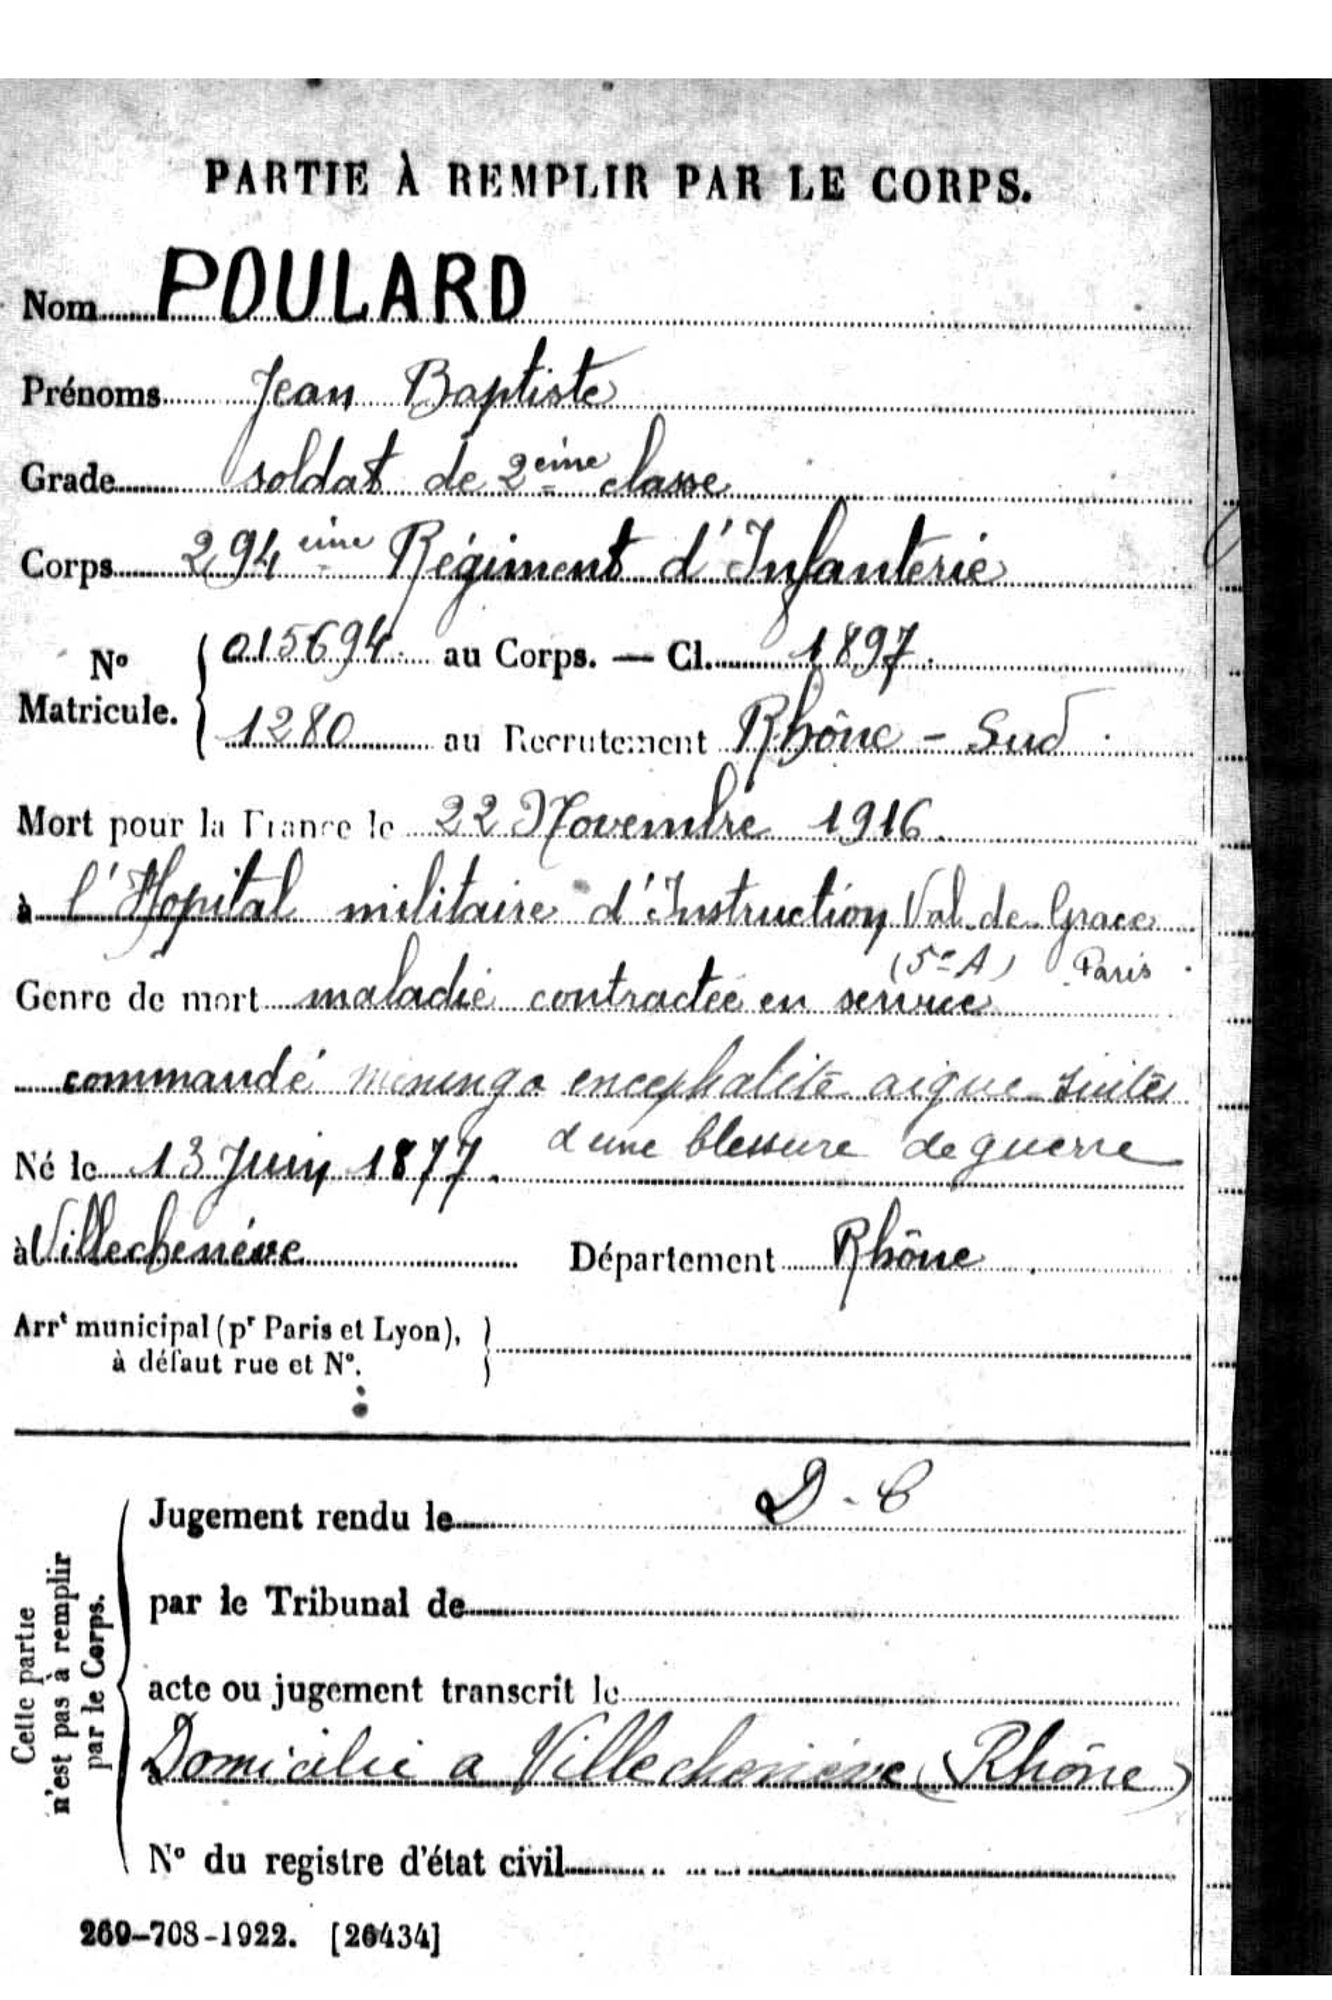 PARTIE À REMPLIR PAR LE CORPS.
Nom POULARD
Prénoms Jean Baptiste
Grade soldat de 2eme classe
Corps 294 eme Régiment d'Infanterie
No Matricule. { 015694. au Corps. — Cl. 1897.
1280 au Recrutement Rhône - Sud
Mort pour la France le 22 Novembre 1916.
à l'Hopital militaire d'Instruction Val de Grace
(5e A) Paris
Genre de mort maladie contractée en service
commandé meningo encephalite aigue suite
d'une blessure de guerre
Né le 13 Juin 1877.
à Villechenève Département Rhône
Arrt municipal (pr Paris et Lyon),
à défaut rue et No.
Cette partie n'est pas à remplir par le Corps.
Jugement rendu le D. C
par le Tribunal de
acte ou jugement transcrit le
à Domicilié a Villechenève (Rhône)
No du registre d'état civil
269-708-1922. [26434]